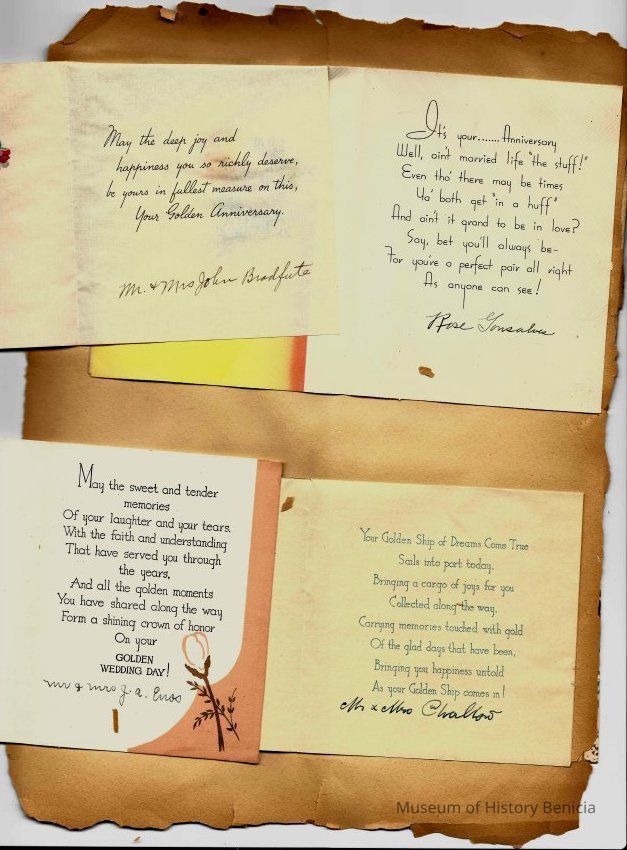 May the deep joy and
happiness you so richly deserve,
be yours in fullest measure on this,
Your Golden Anniversary.
Mr. & Mrs John Bradfute
It's your.......Anniversary
Well, ain't married life "the stuff!"
Even tho' there may be times
Ya' both get "in a huff"
And ain't it grand to be in love?
Say, bet you'll always be-
For you're a perfect pair all right
As anyone can see!
Rose Gonsalves
May the sweet and tender
memories
Of your laughter and your tears,
With the faith and understanding
That have served you through
the years,
And all the golden moments
You have shared along the way
Form a shining crown of honor
On your
GOLDEN
WEDDING DAY!
Mr & Mrs J. A. Enos
Your Golden Ship of Dreams Come True
Sails into port today,
Bringing a cargo of joys for you
Collected along the way,
Carrying memories touched with gold
Of the glad days that have been,
Bringing you happiness untold
As your Golden Ship comes in!
Mr & Mrs
Museum of History Benicia